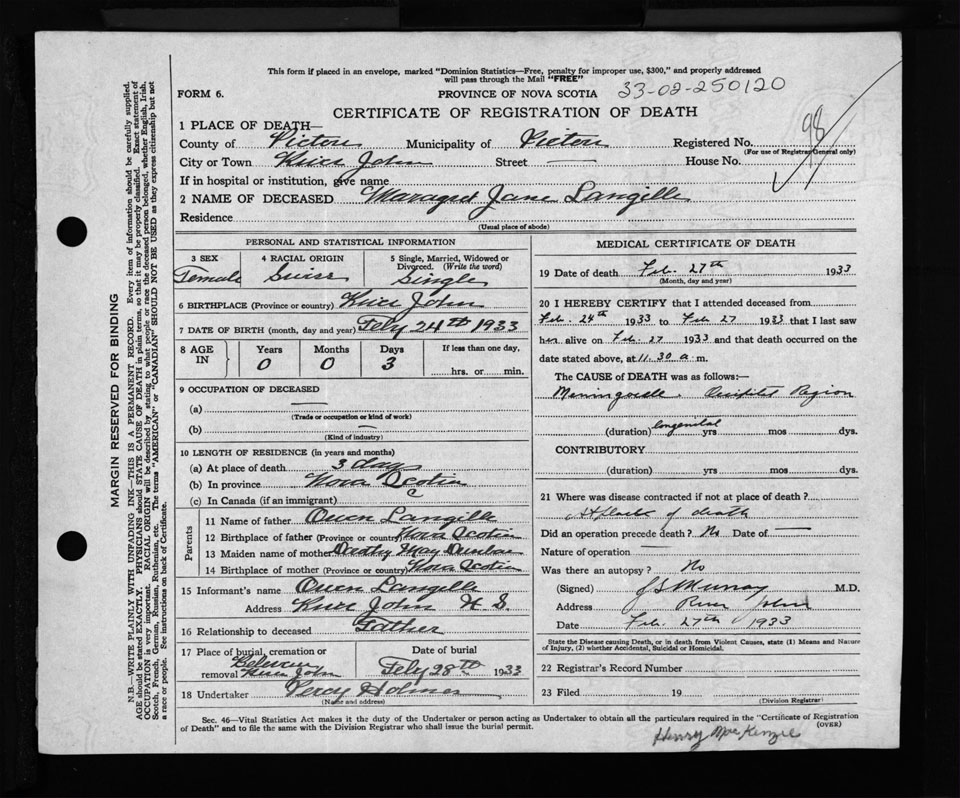 This form if placed in an envelope, marked "Dominion Statistics—Free, penalty for improper use, $300," and properly addressed
will pass through the Mail "FREE"
FORM 6.
PROVINCE OF NOVA SCOTIA 33-02-250120
CERTIFICATE OF REGISTRATION OF DEATH
98
1 PLACE OF DEATH—
County of Pictou Municipality of Pictou Registered No.
(For use of Registrar General only)
City or Town River John Street — House No.
If in hospital or institution, give name
2 NAME OF DECEASED Margaret Jane Langille
Residence
(Usual place of abode)
PERSONAL AND STATISTICAL INFORMATION
3 SEX 4 RACIAL ORIGIN 5 Single, Married, Widowed or
Divorced. (Write the word)
Female Swiss Single
6 BIRTHPLACE (Province or country) River John
7 DATE OF BIRTH (month, day and year) Feby 24th 1933
8 AGE IN Years Months Days If less than one day,
0 0 3 hrs. or min.
9 OCCUPATION OF DECEASED
(a) —
(Trade or occupation or kind of work)
(b) —
(Kind of industry)
10 LENGTH OF RESIDENCE (in years and months)
(a) At place of death 3 days
(b) In province Nova Scotia
(c) In Canada (if an immigrant)
Parents
11 Name of father Owen Langille
12 Birthplace of father (Province or country) Nova Scotia
13 Maiden name of mother Dorothy May Dunbar
14 Birthplace of mother (Province or country) Nova Scotia
15 Informant's name Owen Langille
Address River John N.S.
16 Relationship to deceased Father
17 Place of burial, cremation or Date of burial
removal River John Feby 28th 1933
18 Undertaker Percy Holmes
(Name and address)
MEDICAL CERTIFICATE OF DEATH
19 Date of death Feb. 27th 1933
(Month, day and year)
20 I HEREBY CERTIFY that I attended deceased from
Feb. 24th 1933 to Feb 27 1933 that I last saw
her alive on Feb. 27 1933 and that death occurred on the
date stated above, at 11.30 a.m.
The CAUSE of DEATH was as follows:—
Meningocele. Occipital Region
(duration) Congenital yrs mos dys.
CONTRIBUTORY
(duration) yrs mos dys.
21 Where was disease contracted if not at place of death?
At place of death
Did an operation precede death? No Date of —
Nature of operation —
Was there an autopsy? No
(Signed) J S Murray M.D.
Address River John
Date Feb. 27th 1933
State the Disease causing Death, or in death from Violent Causes, state (1) Means and Nature
of Injury, (2) whether Accidental, Suicidal or Homicidal.
22 Registrar's Record Number
23 Filed 19
(Division Registrar)
Sec. 46—Vital Statistics Act makes it the duty of the Undertaker or person acting as Undertaker to obtain all the particulars required in the "Certificate of Registration
of Death" and to file the same with the Division Registrar who shall issue the burial permit.
(OVER)
Henry MacKenzie
MARGIN RESERVED FOR BINDING
N.B.—WRITE PLAINLY WITH UNFADING INK—THIS IS A PERMANENT RECORD. Every item of information should be carefully supplied.
AGE should be stated EXACTLY. PHYSICIANS should STATE CAUSE OF DEATH in plain terms, so that it may be properly classified. Exact statement of
OCCUPATION is very important. RACIAL ORIGIN will be described by stating to what people or race the deceased person belonged, whether English, Irish,
Scotch, French, German, Russian, Ruthenian, etc. The terms "AMERICAN" or "CANADIAN" SHOULD NOT BE USED as they express citizenship but not
a race or people. See instructions on back of Certificate.